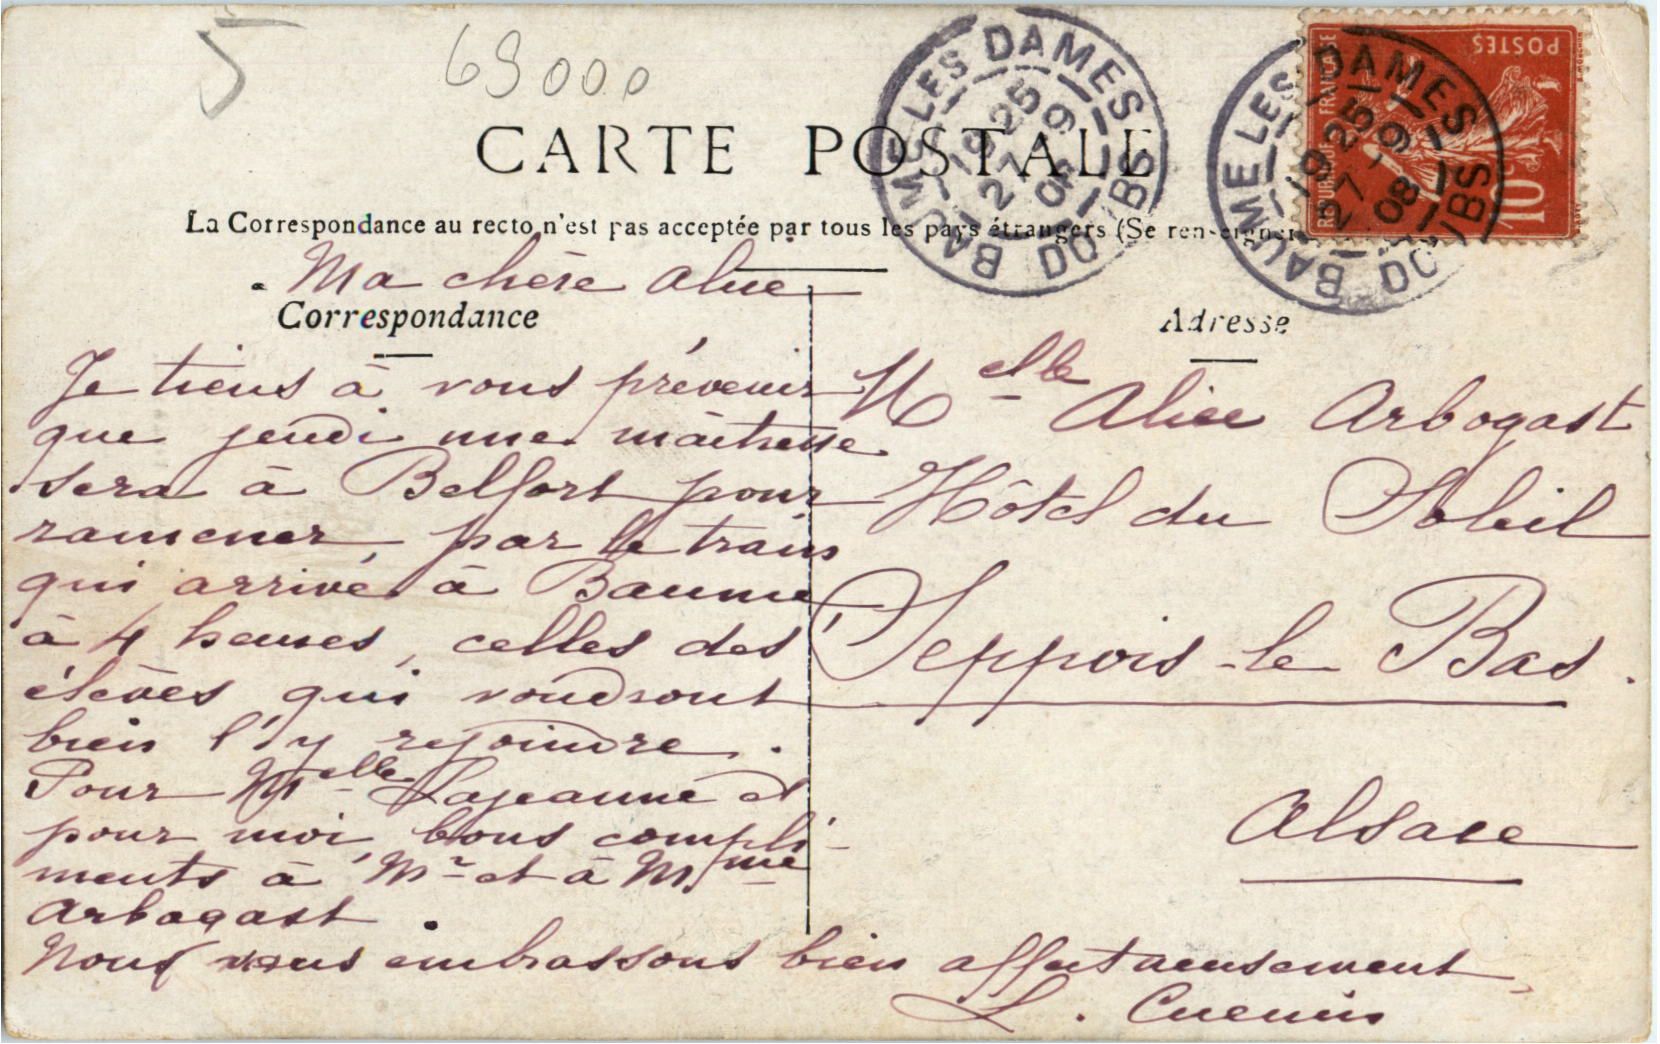 5
69000
CARTE POSTALE
La Correspondance au recto n'est pas acceptée par tous les pays étrangers (Se renseigner
BAUME LES DAMES
19 25
27 - 9
08
DOUBS
BAUME LES DAMES
19 25
27 - 9
08
DOUBS
REPUBLIQUE FRANCAISE
POSTES
10c
Ma chère Alice
Correspondance
Je tiens à vous prévenir
que jeudi une maîtresse
sera à Belfort pour
ramener, par le train
qui arrive à Baume
à 4 heures, celles des
élèves qui voudront
bien l'y rejoindre.
Pour Melle Lajeanne et
pour moi, bons compli-
ments à Mr et à Mme
Arbogast.
Nous vous embrassons bien affectueusement,
L. Cuenin
Adresse
Melle Alice Arbogast
Hôtel du Soleil
Seppois-le Bas.
Alsace